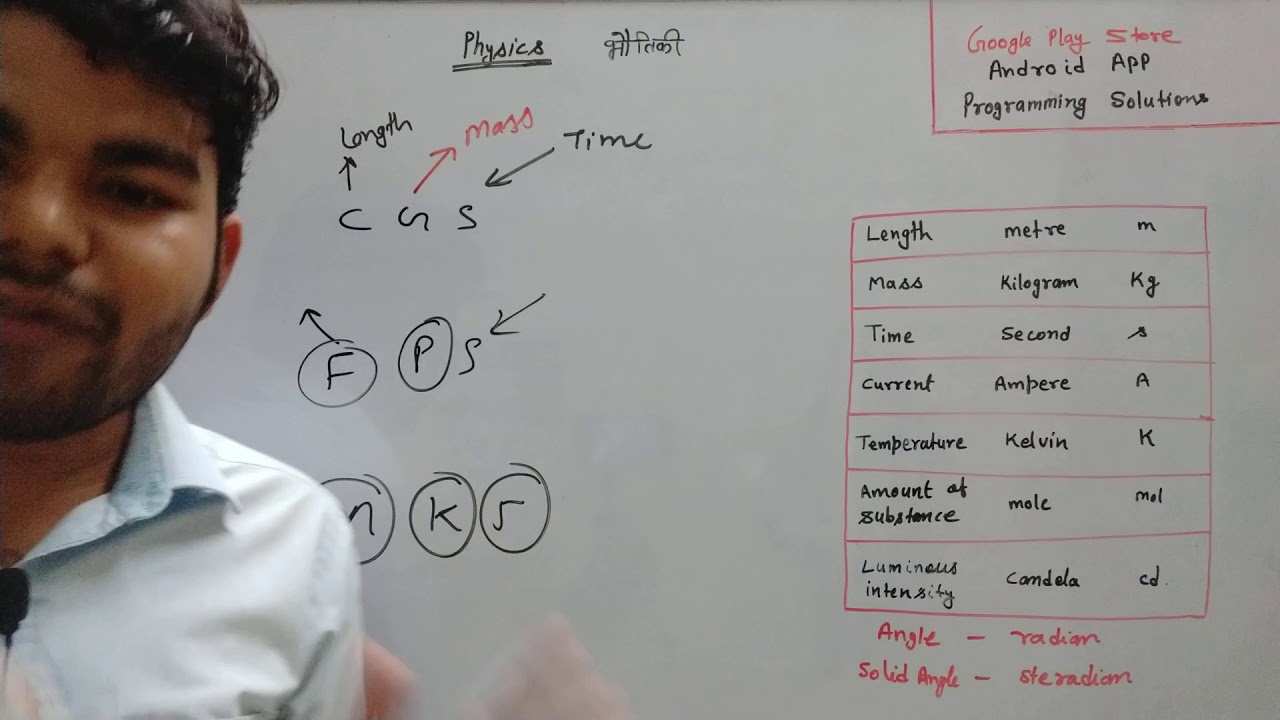 Physics भौतिकी
Google Play Store
Android App
Programming Solutions
Length Mass Time
C G S
F P S
K S
Length metre m
Mass Kilogram Kg
Time Second s
Current Ampere A
Temperature Kelvin K
Amount of
substance mole mol
Luminous
intensity Candela cd.
Angle - radian
Solid Angle - steradian